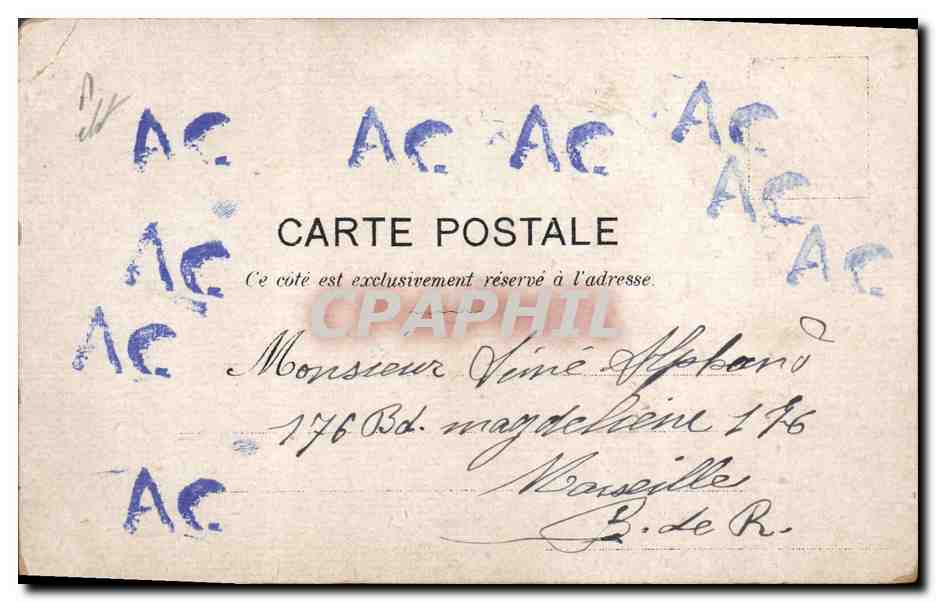 AC. AC. AC. AC
AC
CARTE POSTALE
AC. AC
Ce côté est exclusivement réservé à l'adresse.
CPAPHIL
AC.
Monsieur Aimé Alphand
176 Bd. magdeleine 176
Marseille
AC.
B. de R.